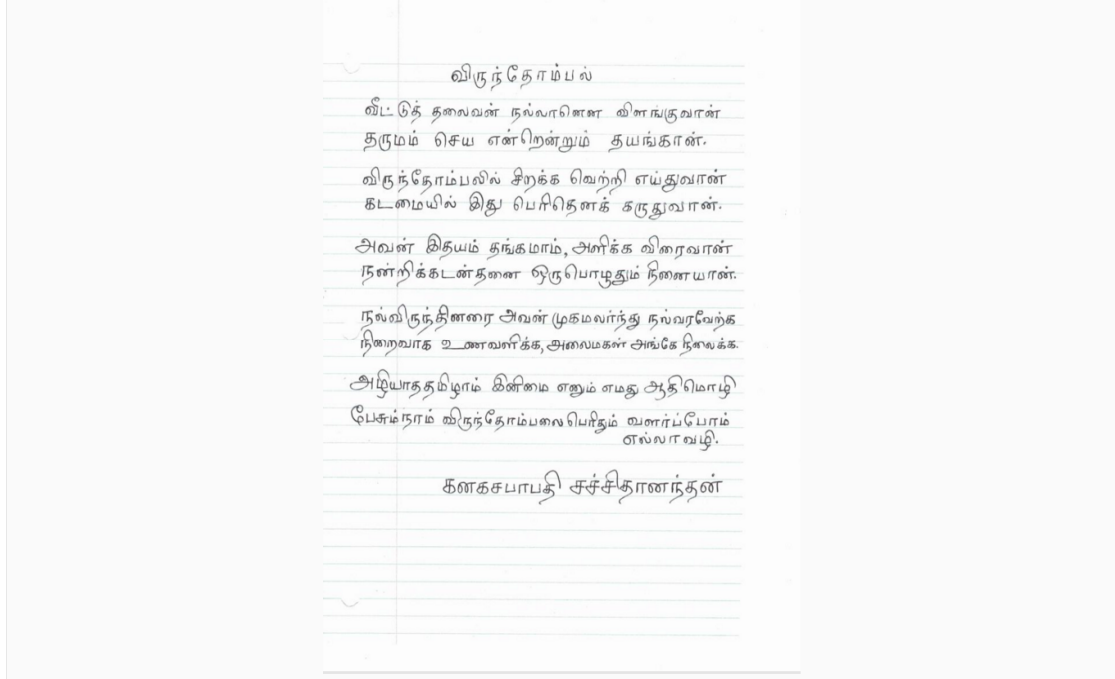 விருந்தோம்பல்
வீட்டுத் தலைவன் நல்லானென விளங்குவான்
தருமம் செய என்றென்றும் தயங்கான்.
விருந்தோம்பலில் சிறக்க வெற்றி எய்துவான்
கடமையில் இது பெரிதெனக் கருதுவான்.
அவன் இதயம் தங்கமாம், அளிக்க விரைவான்
நன்றிக்கடன்தனை ஒருபொழுதும் நினையான்.
நல்விருந்தினரை அவன் முகமலர்ந்து நல்வரவேற்க
நிறைவாக உணவளிக்க, அலைமகள் அங்கே நிலைக்க.
அழியாததமிழாம் இனிமை எனும் எமது ஆதிமொழி
பேசும்நாம் விருந்தோம்பலை பெரிதும் வளர்ப்போம்
எல்லாவழி.
கனகசபாபதி சச்சிதானந்தன்